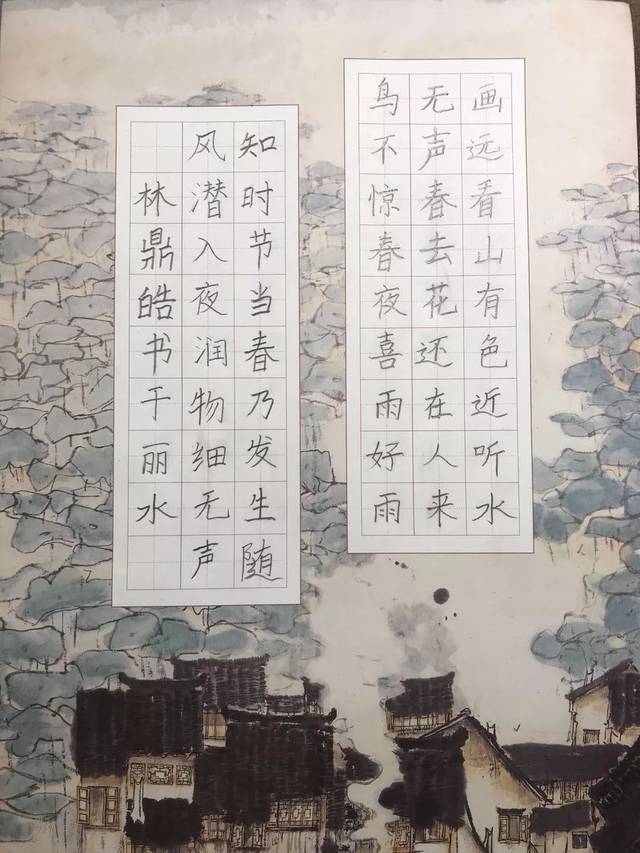 画远看山有色近听水
无声春去花还在人来
鸟不惊春夜喜雨好雨
知时节当春乃发生随
风潜入夜润物细无声
林鼎皓书于丽水